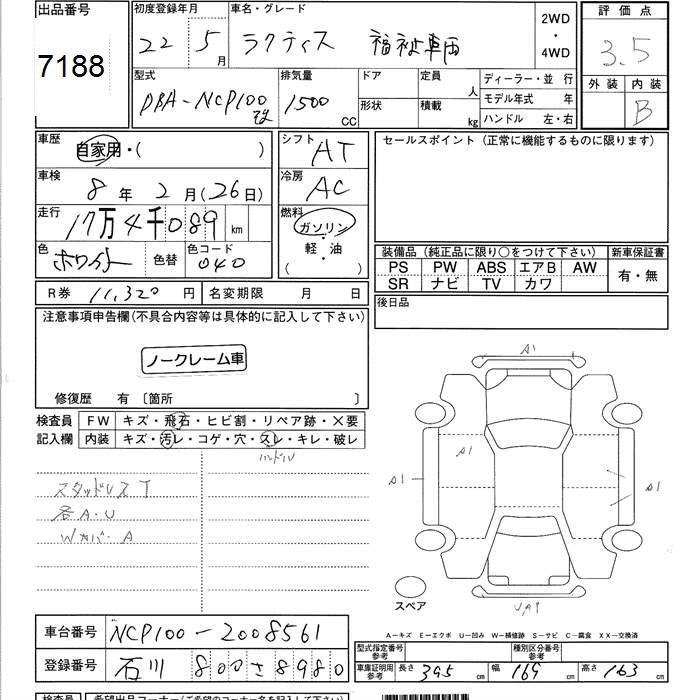 出品番号
7188
初度登録年月 22 5月
車名・グレード
ラクティス 福祉車両
2WD・4WD
評価点
3.5
外装 内装
B
型式
DBA-NCP100改
排気量
1500 CC
ドア
形状
定員 人
積載 kg
ディーラー・並行
モデル年式 年
ハンドル 左・右
車歴
自家用・( )
車検
8年 2月(26日)
走行
17万4千089 km
色
ホワイト
色替
色コード
040
シフト
AT
冷房
AC
燃料
ガソリン・軽・油
( )
セールスポイント(正常に機能するものに限ります)
装備品(純正品に限り○をつけて下さい)
PS PW ABS エアB AW
SR ナビ TV カワ
新車保証書
有・無
後日品
R券 11,320円
名変期限 月 日
注意事項申告欄(不具合内容等は具体的に記入して下さい)
ノークレーム車
修復歴 有〔箇所 〕
検査員記入欄
FW キズ・飛石・ヒビ割・リペア跡・X要
内装 キズ・汚レ・コゲ・穴・スレ・キレ・破レ
ハンドル
スタッドレスT
各A.U
Wカバー A
A1
A1
A1
A1
UA1
スペア
A-キズ E-エクボ U-凹み W-補修跡 S-サビ C-腐食 XX-交換済
車台番号
NCP100-2008561
登録番号
石川 800さ8980
型式指定番号 参考
種別区分番号 参考
車庫証明用 参考
長さ 395cm
幅 169cm
高さ 163cm